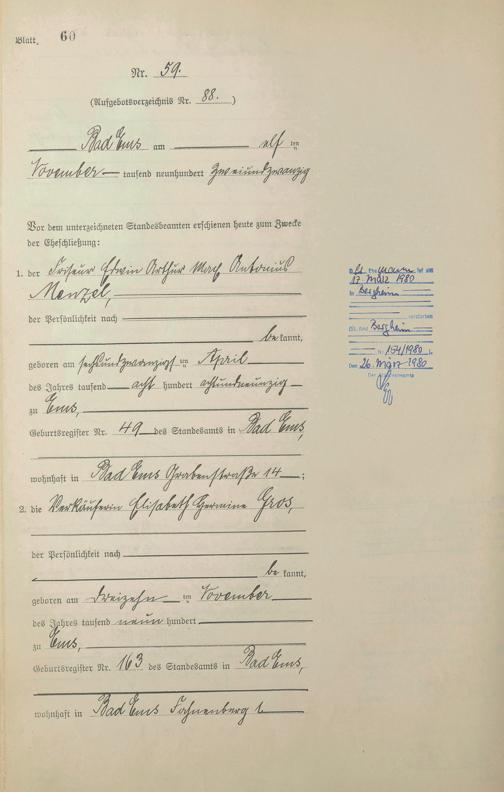 Blatt 60
Nr. 59.
(Aufgebotsverzeichnis Nr. 88.)
Bad Ems am elften
November tausend neunhundert zweiundzwanzig
Vor dem unterzeichneten Standesbeamten erschienen heute zum Zwecke
der Eheschließung:
1. der Friseur Edwin Arthur Antonius
Menzel,
der Persönlichkeit nach
bekannt,
geboren am sechsundzwanzigsten April
des Jahres tausend acht hundert achtundneunzig
zu Ems,
Geburtsregister Nr. 49 des Standesamts in Bad Ems,
wohnhaft in Bad Ems Grabenstraße 14;
2. die Verkäuferin Elisabeth Germine Gros,
der Persönlichkeit nach
bekannt,
geboren am dreizehnten November
des Jahres tausend neunhundert
zu Ems,
Geburtsregister Nr. 163 des Standesamts in Bad Ems,
wohnhaft in Bad Ems
Ehemann ist am
17. März 1980
in Bergheim
verstorben
Bergheim
Nr. 154/1980
Den 26. März 1980